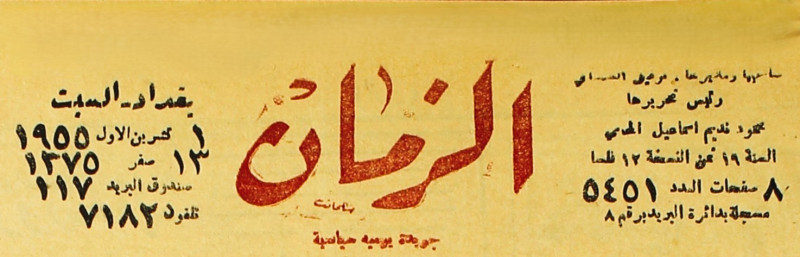 صاحبها ومديرها
ورئيس تحريرها
محمود نديم اسماعيل المحامي
السنة ١٩ ثمن النسخة ١٢ فلسا
٨ صفحات العدد ٥٤٥١
مسجلة بدائرة البريد برقم ٨
الزمان
جريدة يومية سياسية
بغداد - السبت
١ تشرين الاول ١٩٥٥
١٣ صفر ١٣٧٥
صندوق البريد ١١٧
تلفون ٧١٨٢